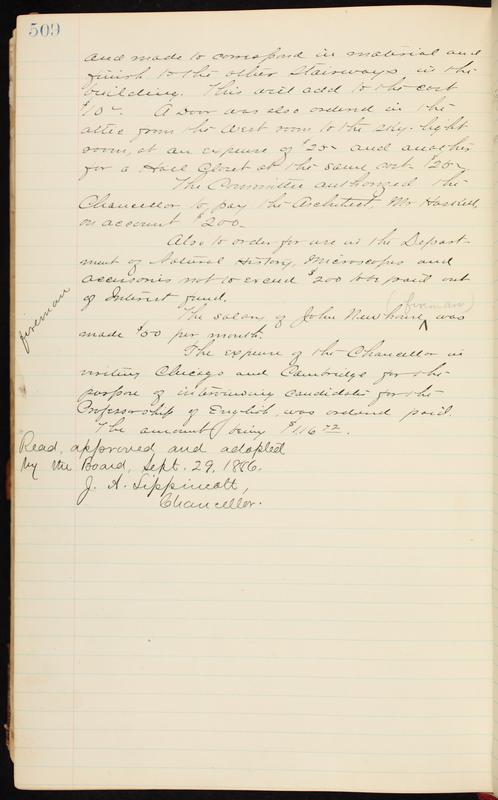 509
and made to correspond in material and
finish to the other Stairways in the
building. This will add to the cost
$10-. A door was also ordered in the
attic from the West room to the sky-light
room, at an expense of $25- and another
for a Hall Closet at the same cost- $25-
The Committee authorized the
Chancellor to pay the Architect, Mr Haskell
on account $200-
Also to order for use in the Depart-
ment of Natural History, Microscopes and
accessories not to exceed $200 to be paid out
of Interest fund.
(fireman)
The salary of John Newhouse ^ was
fireman
made $50 per month.
The expense of the Chancellor in
visiting Chicago and Cambridge for the
purpose of interviewing candidates for the
Professorship of English was ordered paid.
The amount being $116 72.
Read, approved and adopted
by the Board, Sept. 29, 1886.
J. A. Lippincott,
Chancellor.